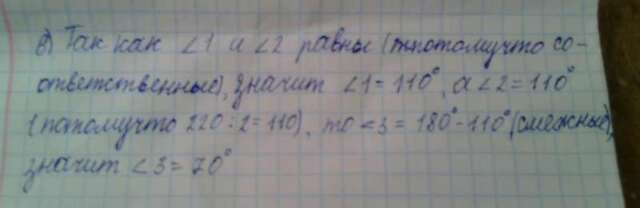 в) Так как ∠1 и ∠2 равны (потомучто со-
ответственные), значит ∠1 = 110°, а ∠2 = 110°
(потомучто 220 : 2 = 110), то ∠3 = 180° - 110° (смежные),
значит ∠3 = 70°